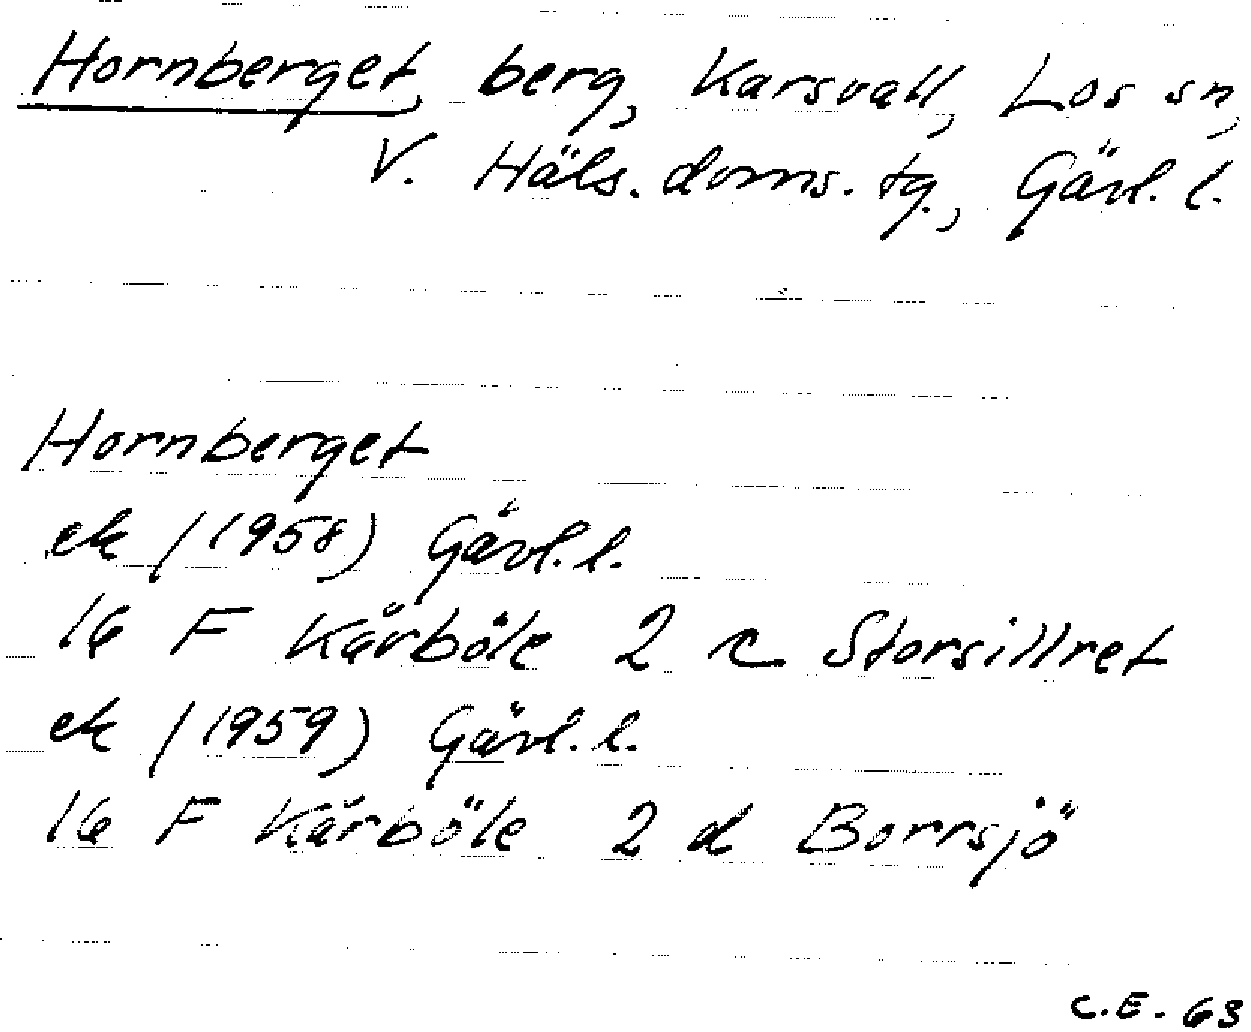 Hornberget, berg, Karsvall, Los sn,
V. Häls. doms. tg., Gävl. l.
Hornberget
ek (1958) Gävl. l.
16 F Kårböle 2 c Storsillret
ek (1959) Gävl. l.
16 F Kårböle 2 d Borrsjö
C.E. 63